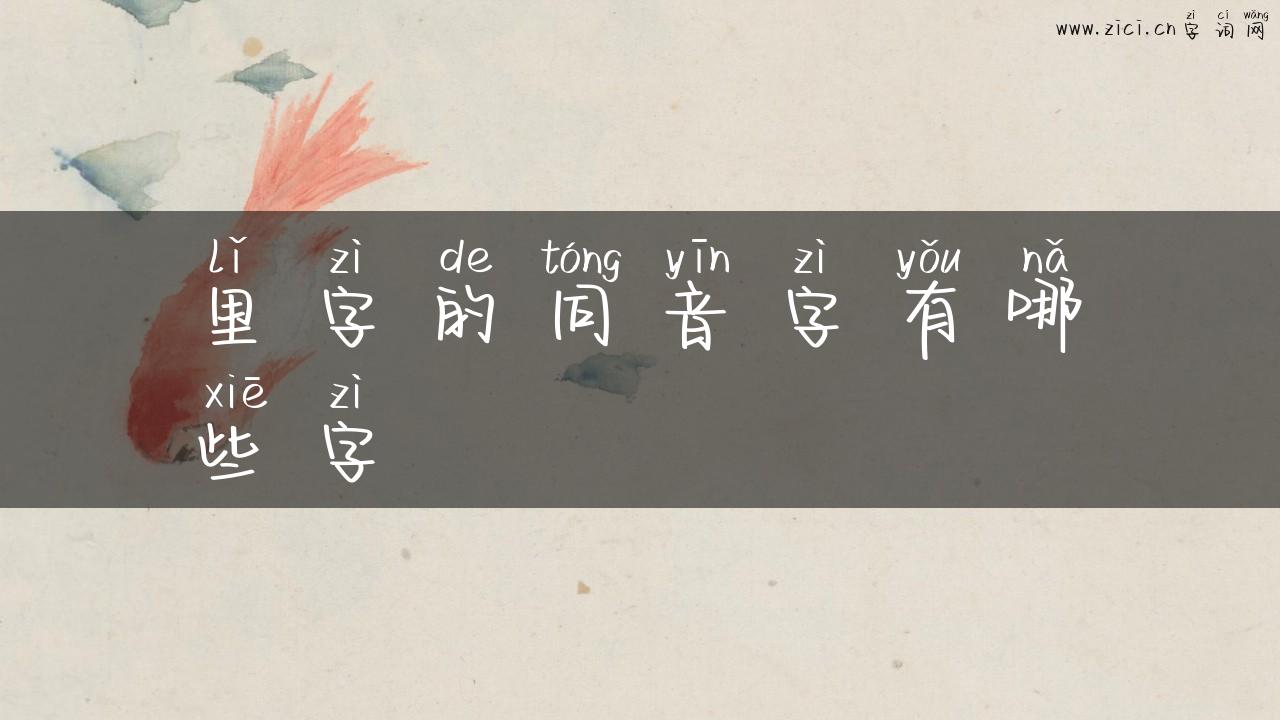 zì cí wǎng
www.zici.cn字词网
lǐ zì de tóng yīn zì yǒu nǎ
里字的同音字有哪
xiē zì
些字